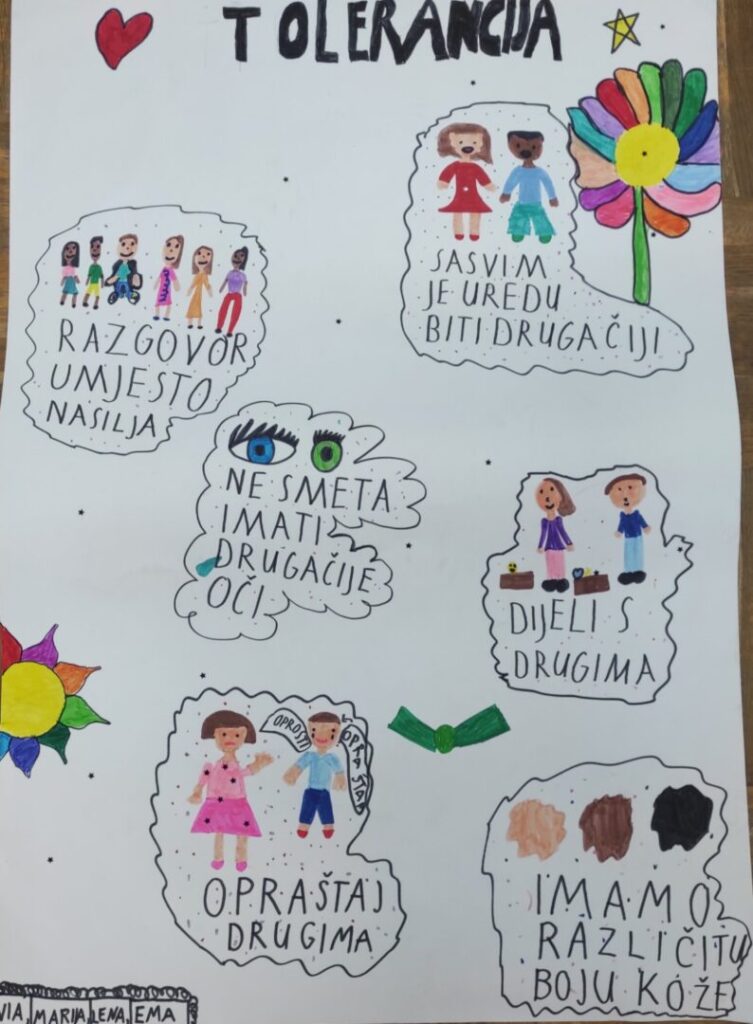 TOLERANCIJA
SASVIM
JE UREDU
BITI DRUGAČIJI
RAZGOVOR
UMJESTO
NASILJA
NE SMETA
IMATI
DRUGAČIJE
OČI
DIJELI S
DRUGIMA
OPROSTI
OPRAŠTAJ
DRUGIMA
IMAMO
RAZLIČITU
BOJU KOŽE
MARIJA, LENA, EMA